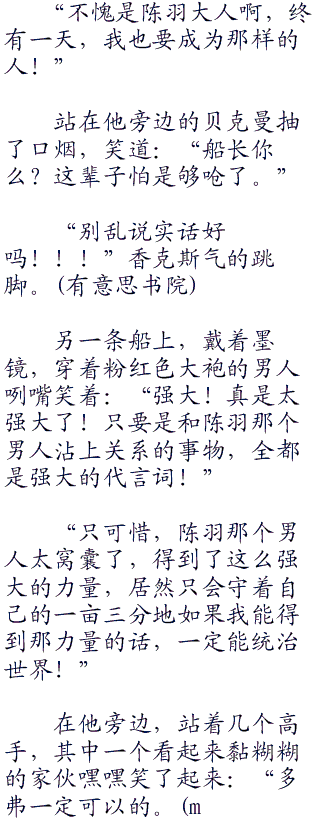 “不愧是陈羽大人啊，终
有一天，我也要成为那样的
人！”
站在他旁边的贝克曼抽
了口烟，笑道：“船长你
么？这辈子怕是够呛了。”
“别乱说实话好
吗！！！”香克斯气的跳
脚。(有意思书院)
另一条船上，戴着墨
镜，穿着粉红色大袍的男人
咧嘴笑着：“强大！真是太
强大了！只要是和陈羽那个
男人沾上关系的事物，全都
是强大的代言词！”
“只可惜，陈羽那个男
人太窝囊了，得到了这么强
大的力量，居然只会守着自
己的一亩三分地如果我能得
到那力量的话，一定能统治
世界！”
在他旁边，站着几个高
手，其中一个看起来黏糊糊
的家伙嘿嘿笑了起来：“多
弗一定可以的。(m